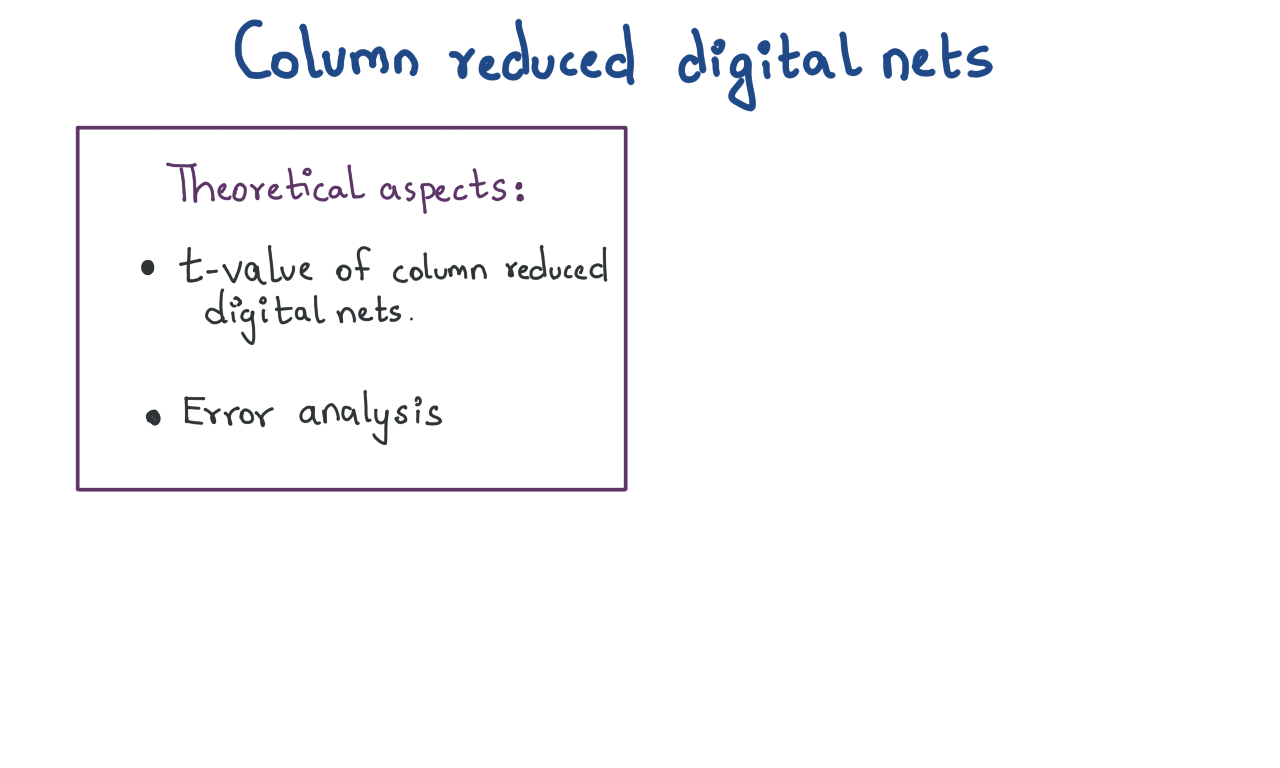 Column reduced digital nets
Theoretical aspects:
• t-value of column reduced
digital nets.
• Error analysis